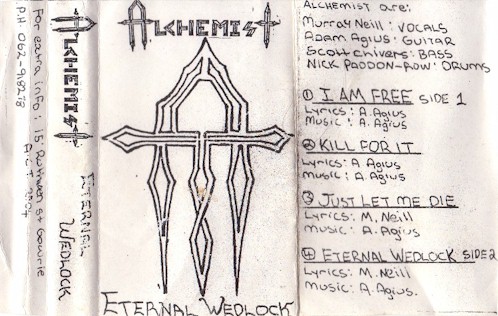 For extra info: 15 Ruthven St Gowrie
A.C.T 2904
P.H. 062-918278
ALCHEMIST
ETERNAL WEDLOCK
ALCHEMIST
ETERNAL WEDLOCK
ALCHEMIST are:
Murray Neill: VOCALS
Adam Agius: GUITAR
Scott Chivers: BASS
NICK PADDON-ROW: DRUMS
① I AM FREE SIDE 1
Lyrics: A. Agius
Music: A. Agius
② KILL FOR IT
Lyrics: A Agius
Music: A. Agius
③ JUST LET ME DIE
Lyrics: M. Neill
Music: A. Agius
④ ETERNAL WEDLOCK SIDE 2
Lyrics: M. Neill
Music: A. Agius.